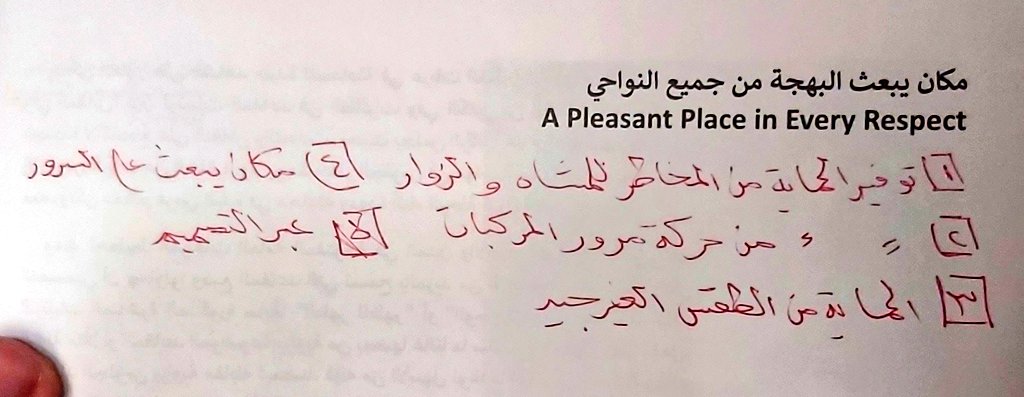 مكان يبعث البهجة من جميع النواحي
A Pleasant Place in Every Respect
١ توفير الحماية من المخاطر للمشاه والزوار ٤ مكان يبعث على السرور
٢ 〃 〃 من حركة مرور المركبات عبر التصميم
٣ الحماية من الطقس الغير جيد